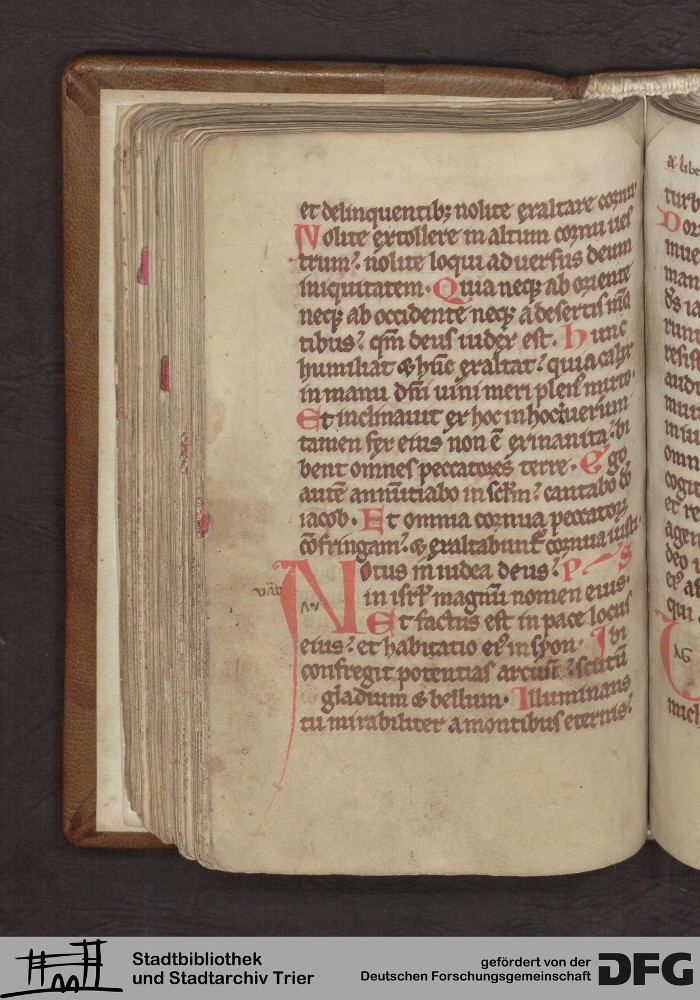 et delinquentibꝫ nolite exaltare cornu
Nolite extollere in altum cornu ues
trum? nolite loqui aduersus deum
iniquitatem. Quia neqꝫ ab oriente
neqꝫ ab occidente neqꝫ a desertis
tibus? qm̄ deus iudex est. hunc
humiliat & hūc exaltat? quia calix
in manu dn̄i uini meri plen᷒ mixto.
Et inclinauit ex hoc in hoc uerum
tamen fex eius non ē exinanita? bi
bent omnes peccatores terre. Ego
autē annūtiabo in sc̄lm? cantabo dō
iacob. Et omnia cornua peccatorꝝ
cōfringam? & exaltabunt᷒ cornua iusti.
Notus in iudea deus? Ps
in isrl̄ magnū nomen eius.
Et factus est in pace locus
eius? et habitatio ei᷒ in syon. Ibi
confregit potentias arcuū? scutū
gladium & bellum. Illuminans
tu mirabiliter a montibus eternis?
a libe
turb
Dor
mue
man
ds ia
runt
resist
audi
mui
omn
cogit
et re
agen
deo
qui
mich
Stadtbibliothek
und Stadtarchiv Trier
gefördert von der
Deutschen Forschungsgemeinschaft
DFG